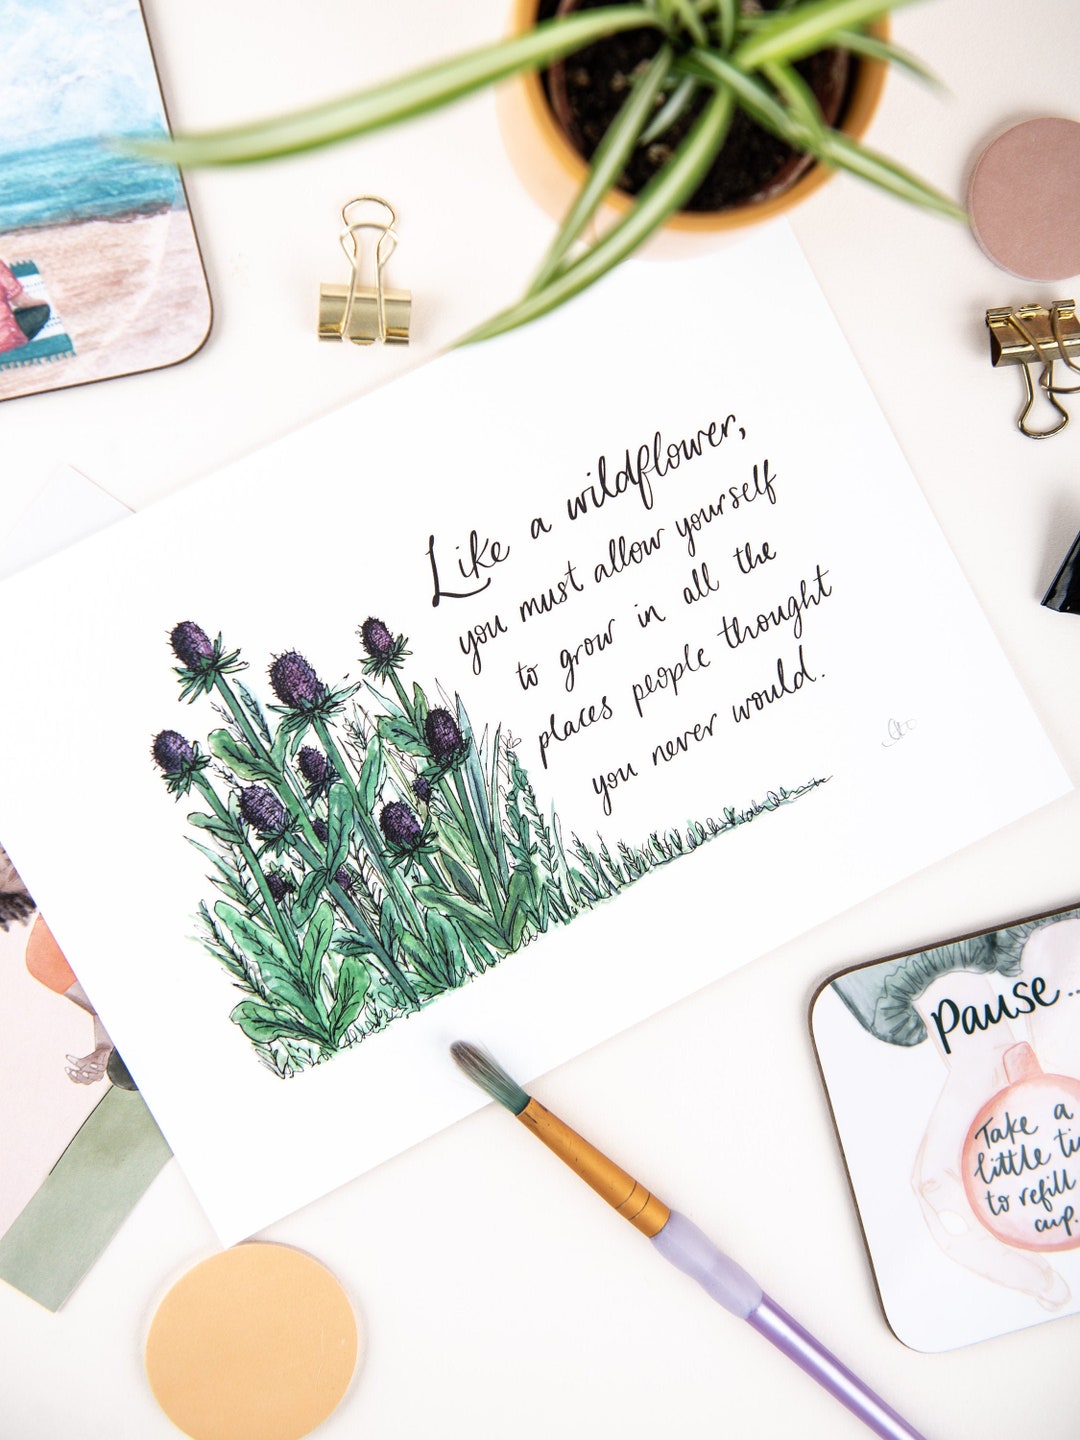 Like a wildflower,
you must allow yourself
to grow in all the
places people thought
you never would.
Pause...
Take a
little
to refill
cup.